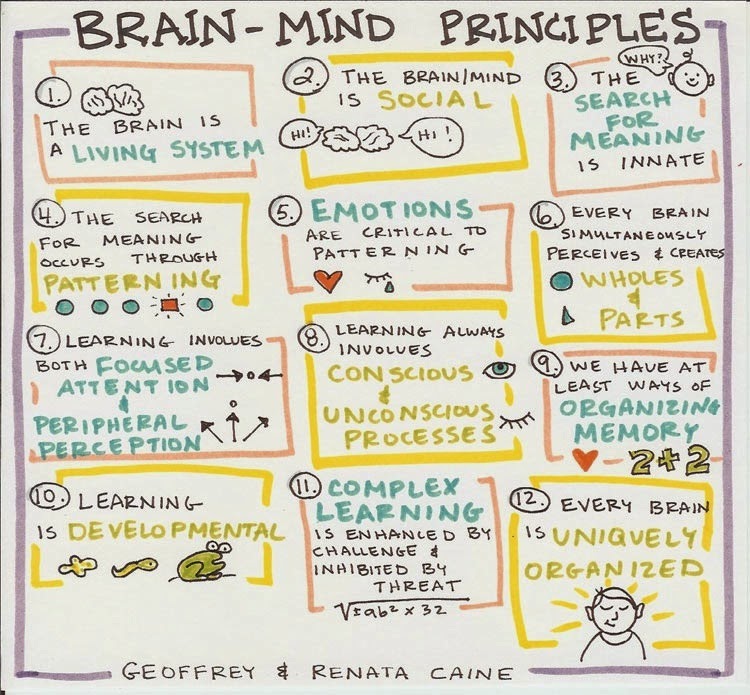 BRAIN-MIND PRINCIPLES
1.
THE BRAIN IS
A LIVING SYSTEM
2.
THE BRAIN/MIND
IS SOCIAL
HI!
HI!
3.
WHY?
THE
SEARCH
FOR
MEANING
IS INNATE
4.
THE SEARCH
FOR MEANING
OCCURS THROUGH
PATTERNING
5.
EMOTIONS
ARE CRITICAL TO
PATTERNING
6.
EVERY BRAIN
SIMULTANEOUSLY
PERCEIVES & CREATES
WHOLES
&
PARTS
7.
LEARNING INVOLVES
BOTH FOCUSED
ATTENTION
&
PERIPHERAL
PERCEPTION
8.
LEARNING ALWAYS
INVOLVES
CONSCIOUS
&
UNCONSCIOUS
PROCESSES
9.
WE HAVE AT
LEAST WAYS OF
ORGANIZING
MEMORY
2+2
10.
LEARNING
IS DEVELOPMENTAL
11.
COMPLEX
LEARNING
IS ENHANCED BY
CHALLENGE &
INHIBITED BY
THREAT
√±ab² x 32
12.
EVERY BRAIN
IS UNIQUELY
ORGANIZED
GEOFFREY & RENATA CAINE